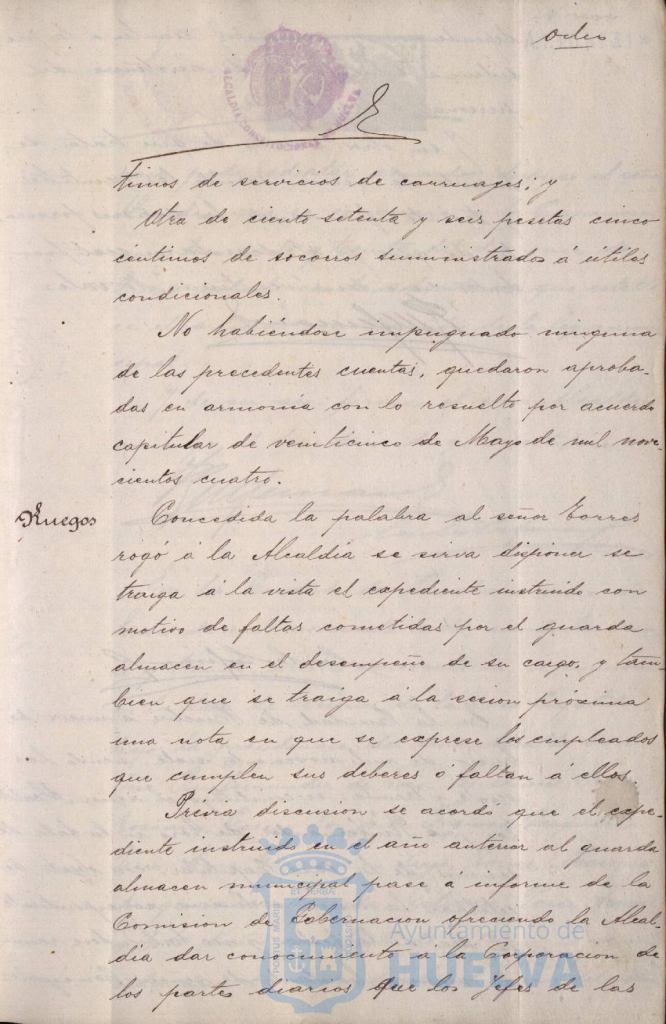 ocho
ALCALDIA CONSTITUCIONAL HUELVA
timos de servicios de carruages; y
Otra de ciento setenta y seis pesetas cinco
centimos de socorros suministrados á útiles
condicionales.
No habiéndose impugnado ninguna
de las precedentes cuentas, quedaron aproba-
das en armonía con lo resuelto por acuerdo
capitular de veinticinco de Mayo de mil nove-
cientos cuatro.
Ruegos
Concedida la palabra al señor Torres
rogó á la Alcaldía se sirva disponer se
traiga á la vista el expediente instruido con
motivo de faltas cometidas por el guarda
almacen en el desempeño de su cargo, y tam-
bien que se traiga á la sesion próxima
una nota en que se exprese los empleados
que cumplen sus deberes ó faltan á ellos.
Prévia discusion se acordó que el expe-
diente instruido en el año anterior al guarda
almacen municipal pase á informe de la
Comision de Gobernacion ofreciendo la Alcal-
día dar conocimiento á la Corporacion de
los partes diarios que los Jefes de las
Ayuntamiento de
HUELVA